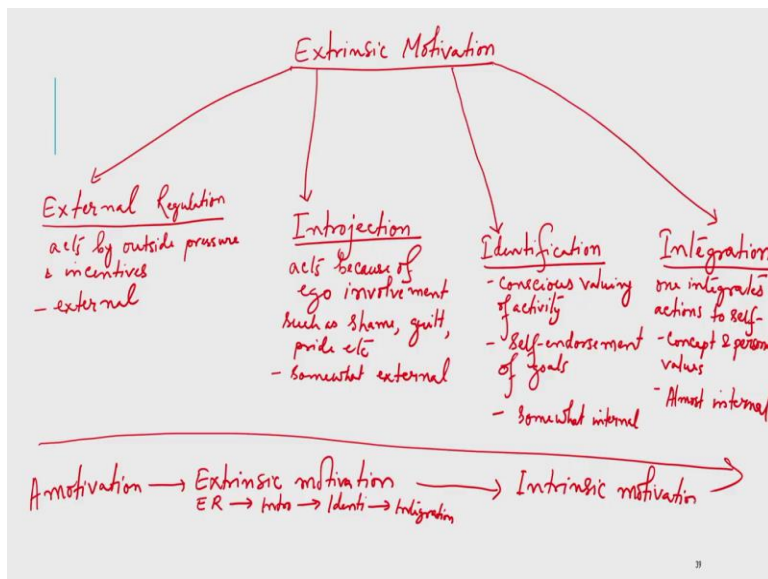 Extrinsic Motivation
External Regulation
acts by outside pressure
& incentives
- external
Introjection
acts because of
ego involvement
such as shame, guilt,
pride etc
- Somewhat external
Identification
- Conscious valuing
of activity
- Self-endorsement
of goals
- Somewhat internal
Integration
one integrates
actions to self-
- Concept &
values
- Almost internal
Amotivation → Extrinsic motivation → Intrinsic motivation
ER → Intro → Identi → Integration
39